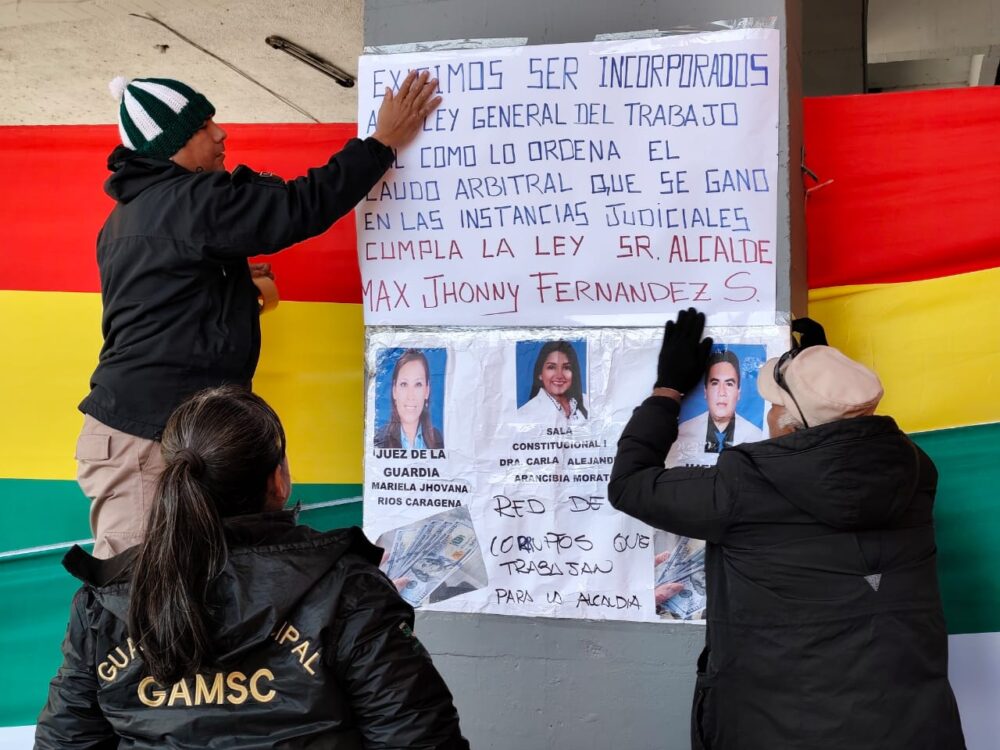 EXIGIMOS SER INCORPORADOS
LEY GENERAL DEL TRABAJO
COMO LO ORDENA EL
LAUDO ARBITRAL QUE SE GANO
EN LAS INSTANCIAS JUDICIALES
CUMPLA LA LEY SR. ALCALDE
MAX JHONNY FERNANDEZ S.
JUEZ DE LA
GUARDIA
MARIELA JHOVANA
RIOS CARAGENA
SALA
CONSTITUCIONAL I
DRA. CARLA ALEJAND
ARANCIBIA MORAT
RED DE
CORRUPTOS QUE
TRABAJAN
PARA LA ALCALDIA
GAMSC